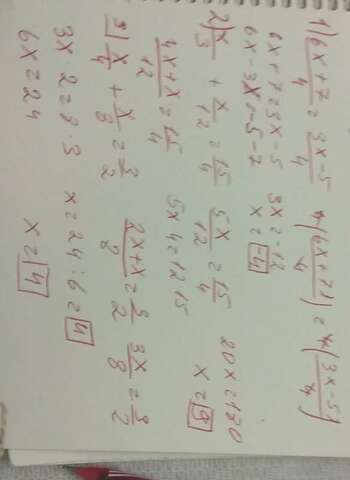 1) 6x+7/4 = 3x-5/4   4(6x+7/4) = 4(3x-5/4)
6x+7=3x-5   3x=-12
6x-3x=-5-7   x=-4
2) x/3 + x/12 = 15/4   5x/12 = 15/4   20x=180
4x+x/12 = 15/4   5x4=12 15   x=9
3) x/4 + x/8 = 3/2   2x+x/8 = 3/2   3x/8 = 3/2
3x·2=8·3   x=24:6=4
6x=24   x=4